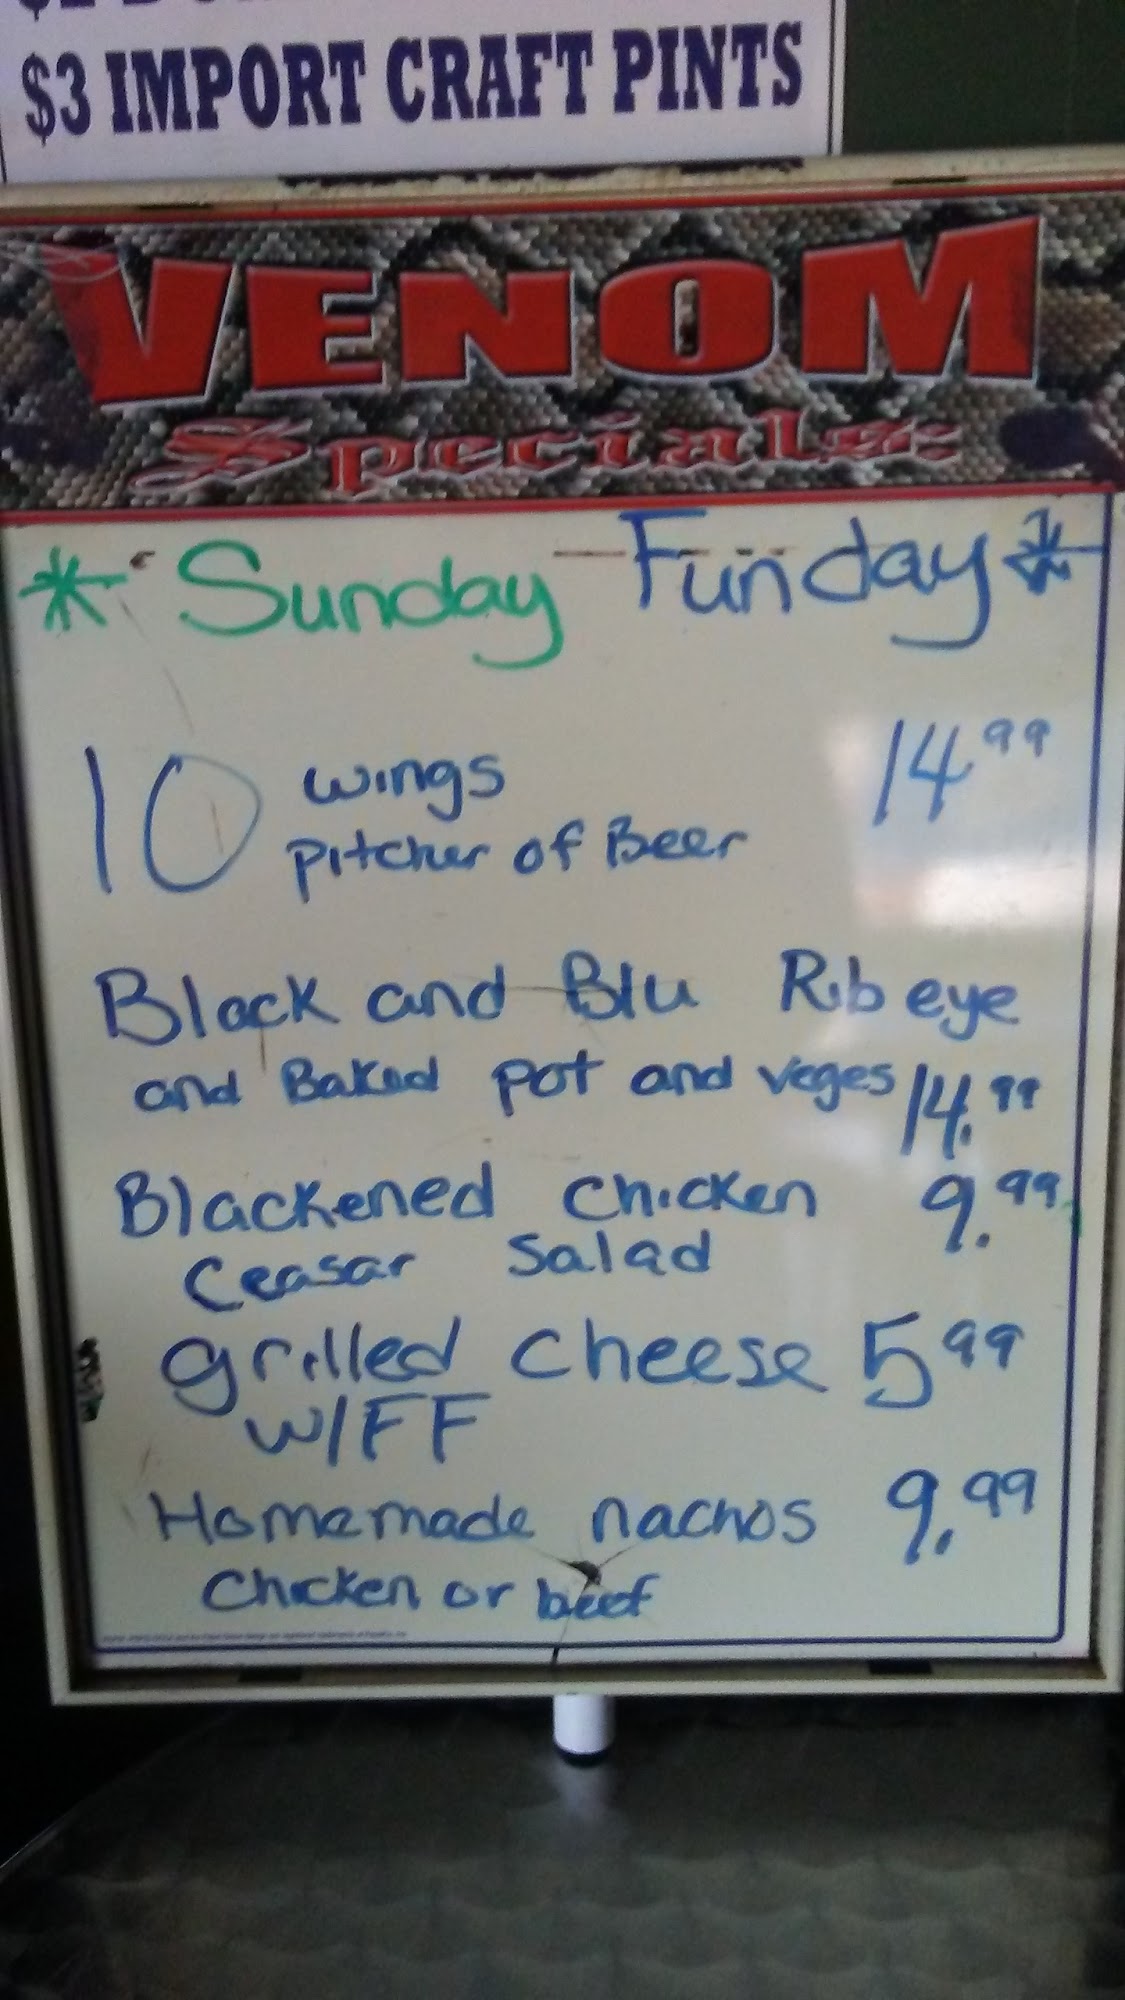 $3 IMPORT CRAFT PINTS
VENOM
Specials:
* Sunday Funday *
10 wings 14 99
pitcher of Beer
Black and Blu Rib eye
and Baked pot and veges 14.99
Blackened chicken 9.99
Ceasar Salad
grilled cheese 5 99
w/FF
Homemade nachos 9.99
Chicken or beef